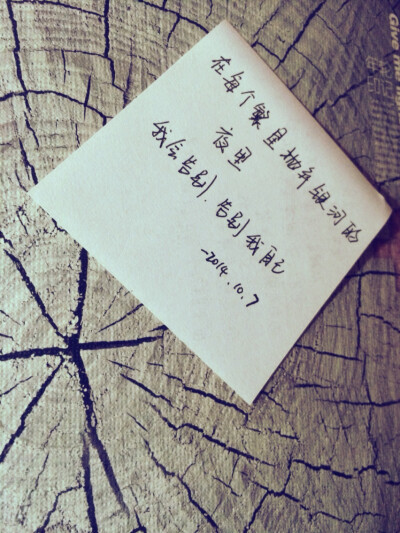 在每个繁星抛弃银河的
夜里
我会告别,告别我自己
-2014.10.7